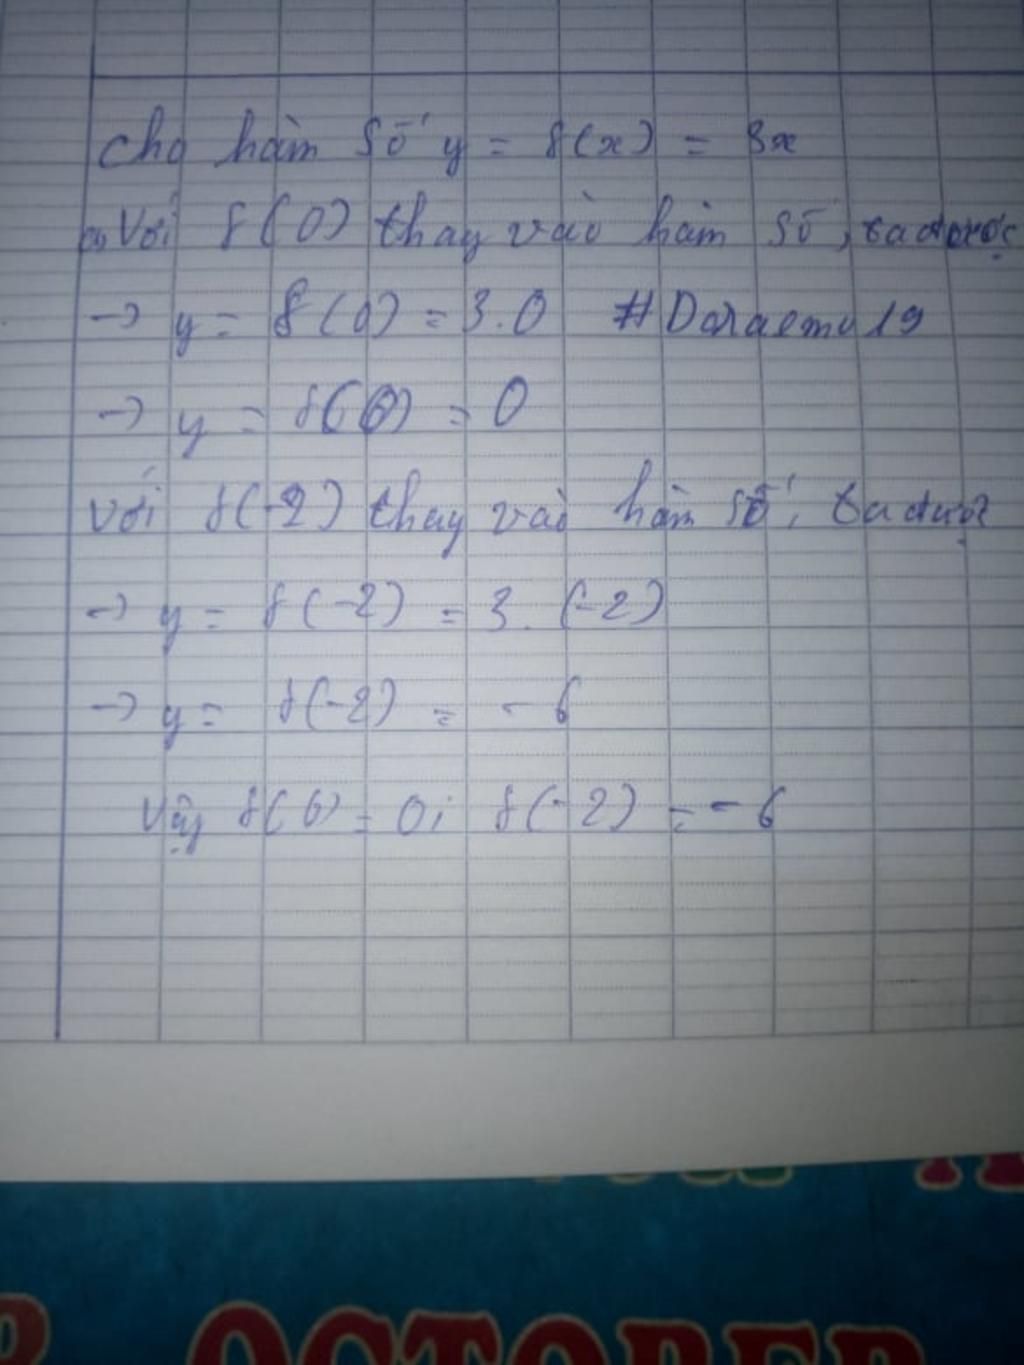 Cho hàm số y = f(x) = 3x
a, Với f(0) thay vào hàm số, ta được
→ y = f(0) = 3.0 #Doraemo19
→ y = f(0) = 0
Với f(-2) thay vào hàm số, ta được
→ y = f(-2) = 3.(-2)
→ y = f(-2) = -6
Vậy f(0) = 0; f(-2) = -6
OCTOBER